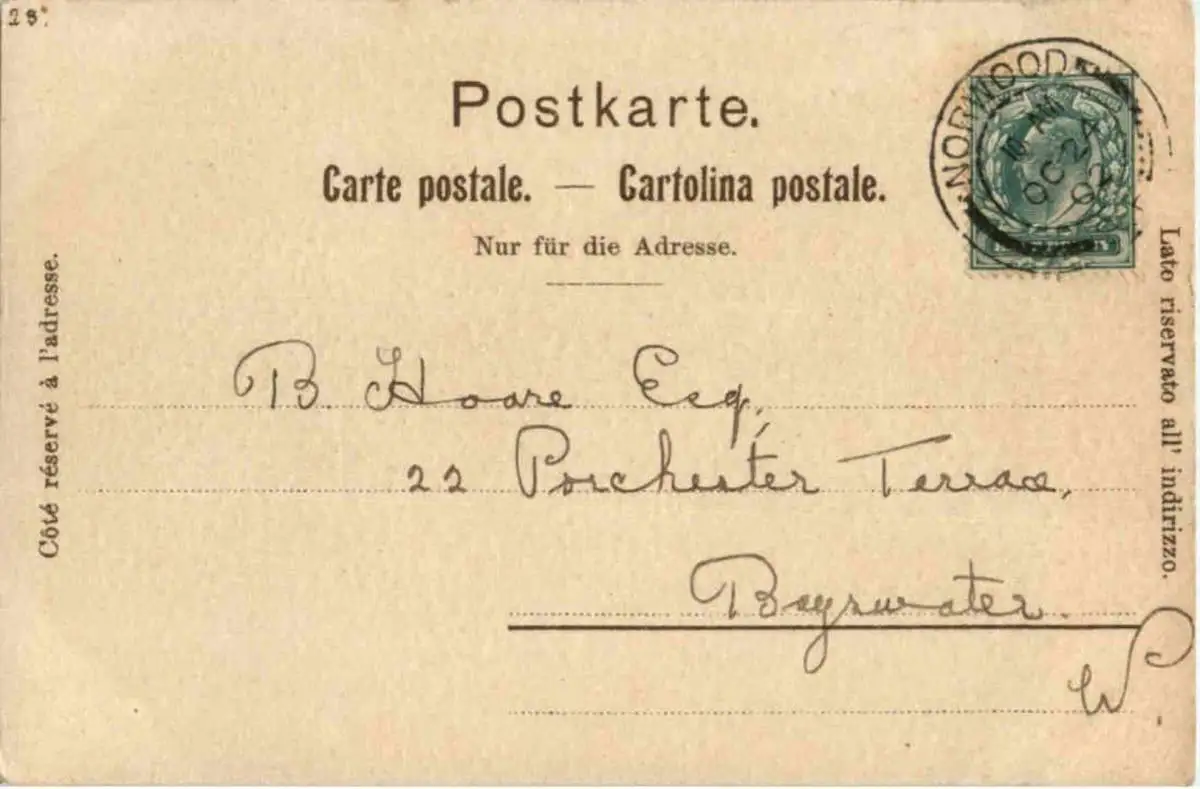 28.
Postkarte.
Carte postale. — Cartolina postale.
Nur für die Adresse.
Côté réservé à l'adresse.
Lato riservato all' indirizzo.
NORWOOD
OC 24
02
B. Hoare Esq,
22 Porchester Terrace,
Bayswater.
W.